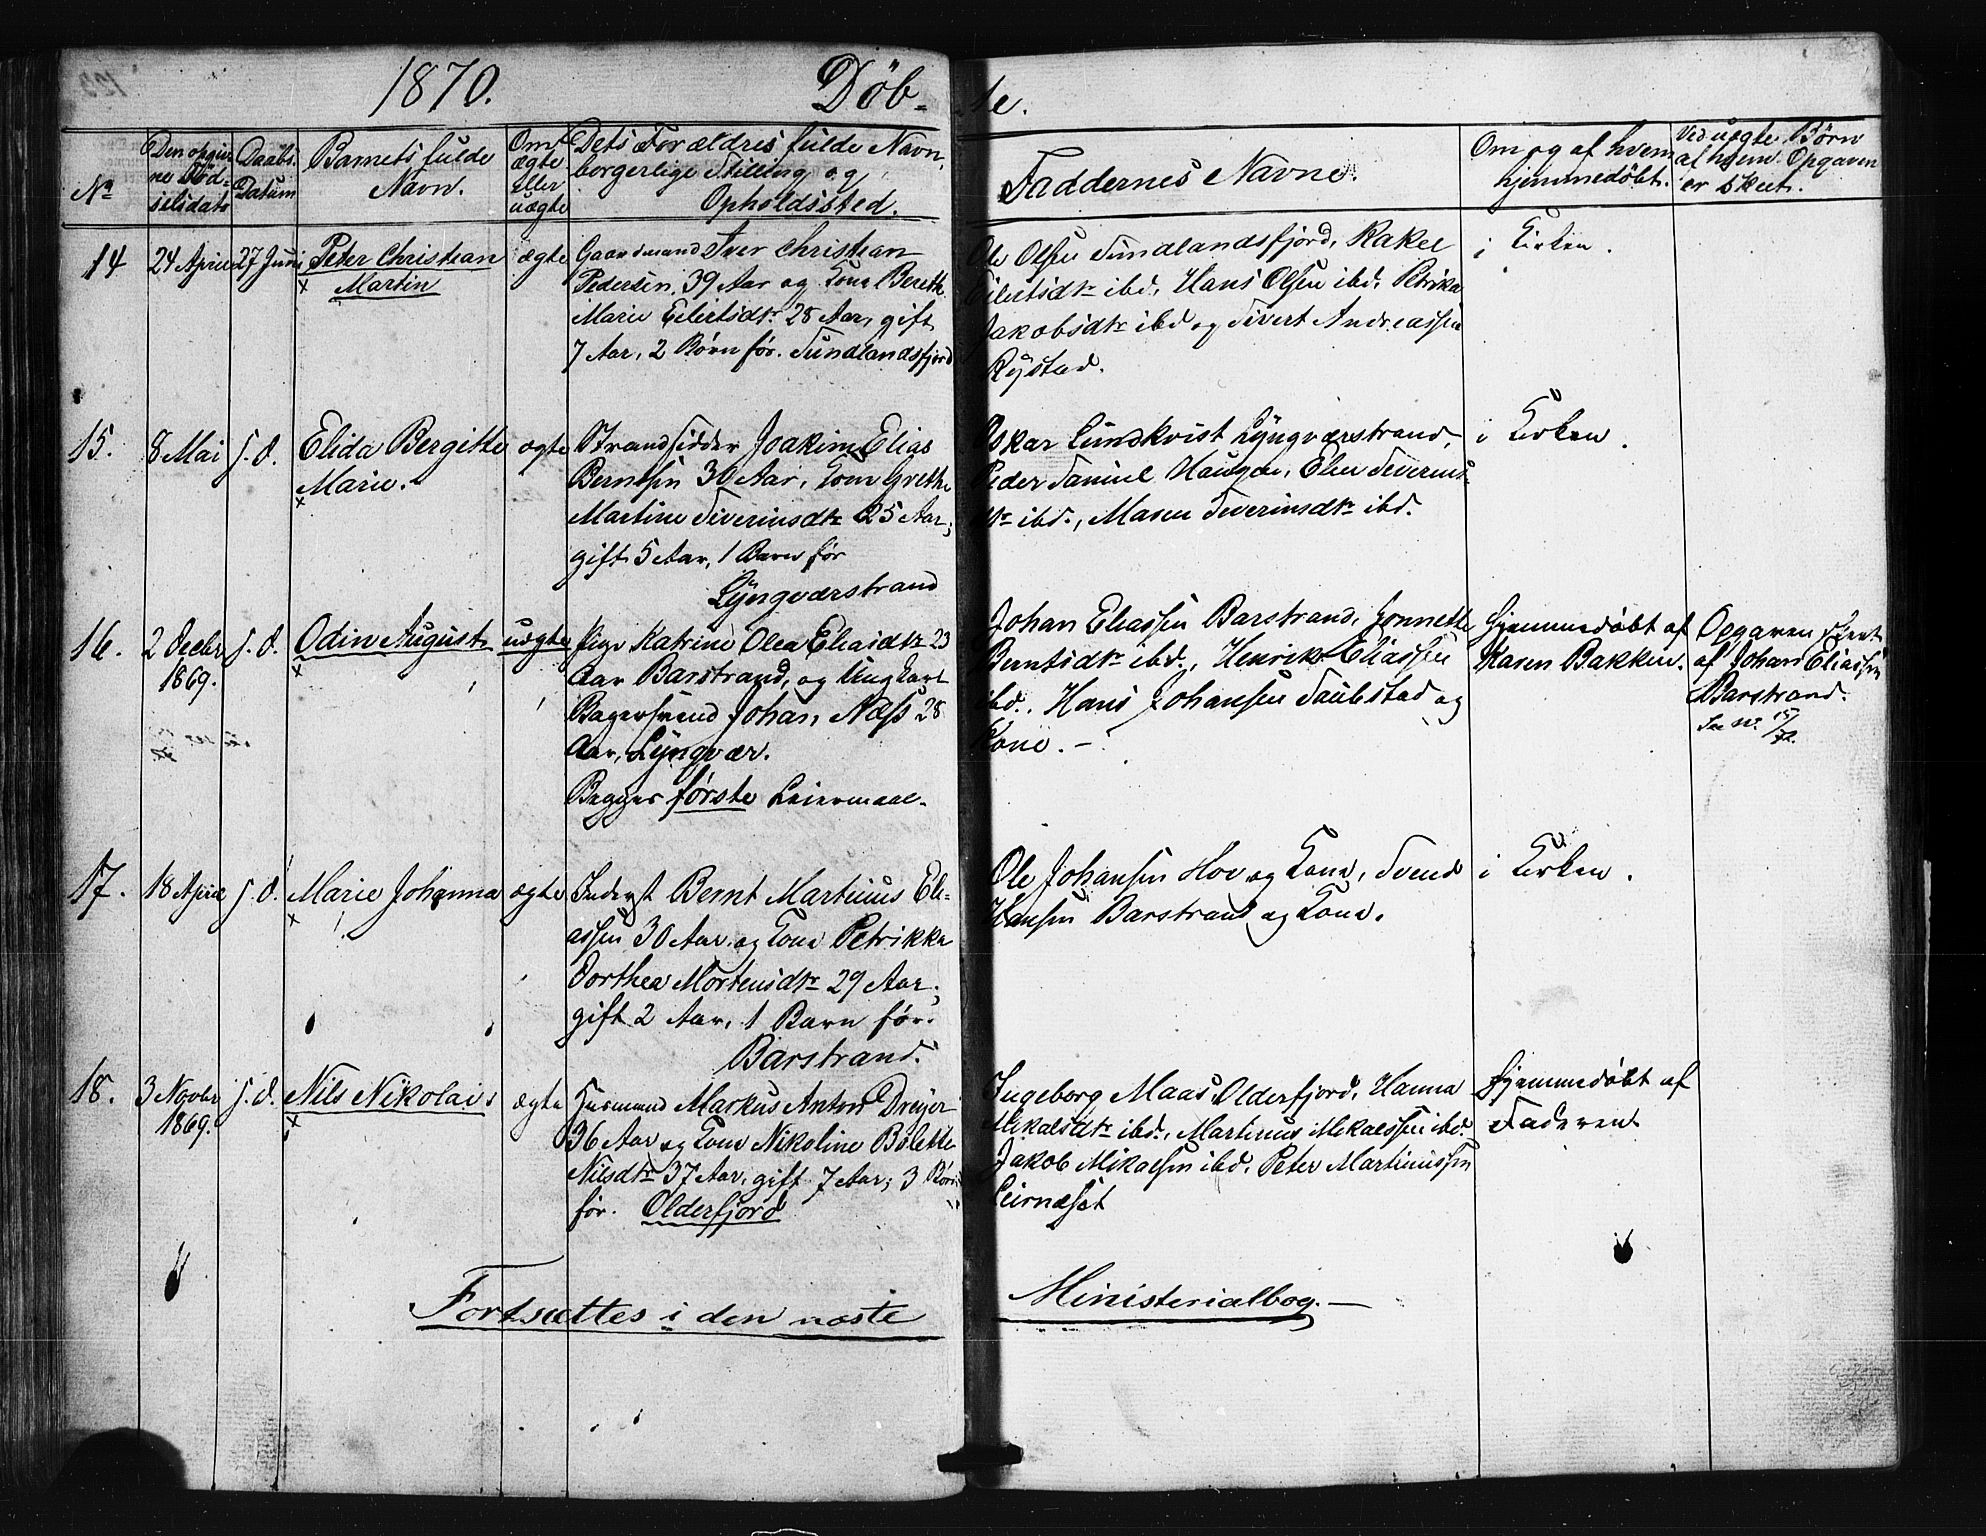 1870. Døb- te.
No
Den opgiv-
ne Fød-
selsdato
Daabs-
Datum
Barnets fulde
Navn.
Om
ægte
eller
uægte
Dets Forældres fulde Navn,
borgerlige Stilling og
Opholdssted.
Faddernes Navne.
Om og af hvem
hjemmedøbt.
Ved uægte Børn
af hvem Opgaven
er skeet.
14
24 April
27 Juni
Peter Christian
Martin
ægte
Gaardmand Iver Christian
Pedersen, 39 Aar og Kone Bereth
Marie Eilertsdtr 28 Aar, gift
7 Aar, 2 Børn før. Sundlandsfjord
Ole Olsen Sundlandsfjord, Rakel
Eilertsdtr ibd, Hans Olsen ibd. Petrika
Jakobsdtr ibd og Sivert Andreassen
Rystad.
i Kirken.
15.
8 Mai
s. d.
Elida Bergitte
Marie.
ægte
Strandsidder Joakim Elias
Berntsen 30 Aar, Kone Grethe
Martine Severinsdtr 25 Aar;
gift 5 Aar, 1 Barn før
Lyngværstrand
Oskar Lundkvist Lyngværstrand,
Peder Samuel Haugen, Elen Severins-
dtr ibd., Maren Severinsdtr ibd.
i Kirken.
16.
2 Decbr
1869.
s. d.
Odin August
uægte
Pige Katrine Olea Eliasdtr 23
Aar Barstrand, og Ungkarl
Bagersvend Johan Næss 28
Aar, Lyngvær.
Begges første Leiermaal.
Johan Eliassen Barstrand, Jonnette
Berntsdtr ibd., Henrik Eliassen
ibd., Hans Johansen Saubstad og
Kone. —
Hjemmedøbt af
Karen Bakken.
Opgaven skeet
af Johan Eliassen
Barstrand.
See No. 15/72.
17.
18 April
s. d.
Marie Johanna
ægte
Inderst Bernt Martinus Eli-
assen 30 Aar og Kone Petrikka
Dorthea Mortensdtr 29 Aar.
gift 2 Aar, 1 Barn før.
Barstrand.
Ole Johansen Hov og Kone, Svend
Hansen Barstrand og Kone.
i Kirken.
18.
3 Novbr
1869.
s. d.
Nils Nikolai
ægte
Husmand Markus Anton Dreyer
36 Aar og Kone Nikoline Bolette
Nilsdtr 37 Aar, gift 7 Aar; 3 Børn
før. Olderfjord
Ingeborg Maas Olderfjord, Hanna
Mikalsdtr ibd., Martinus Mikalsen ibd.
Jakob Mikalsen ibd, Peter Martinussen
Leirnæset
Hjemmedøbt af
Faderen
Fortsættes i den næste
Ministerialbog. —